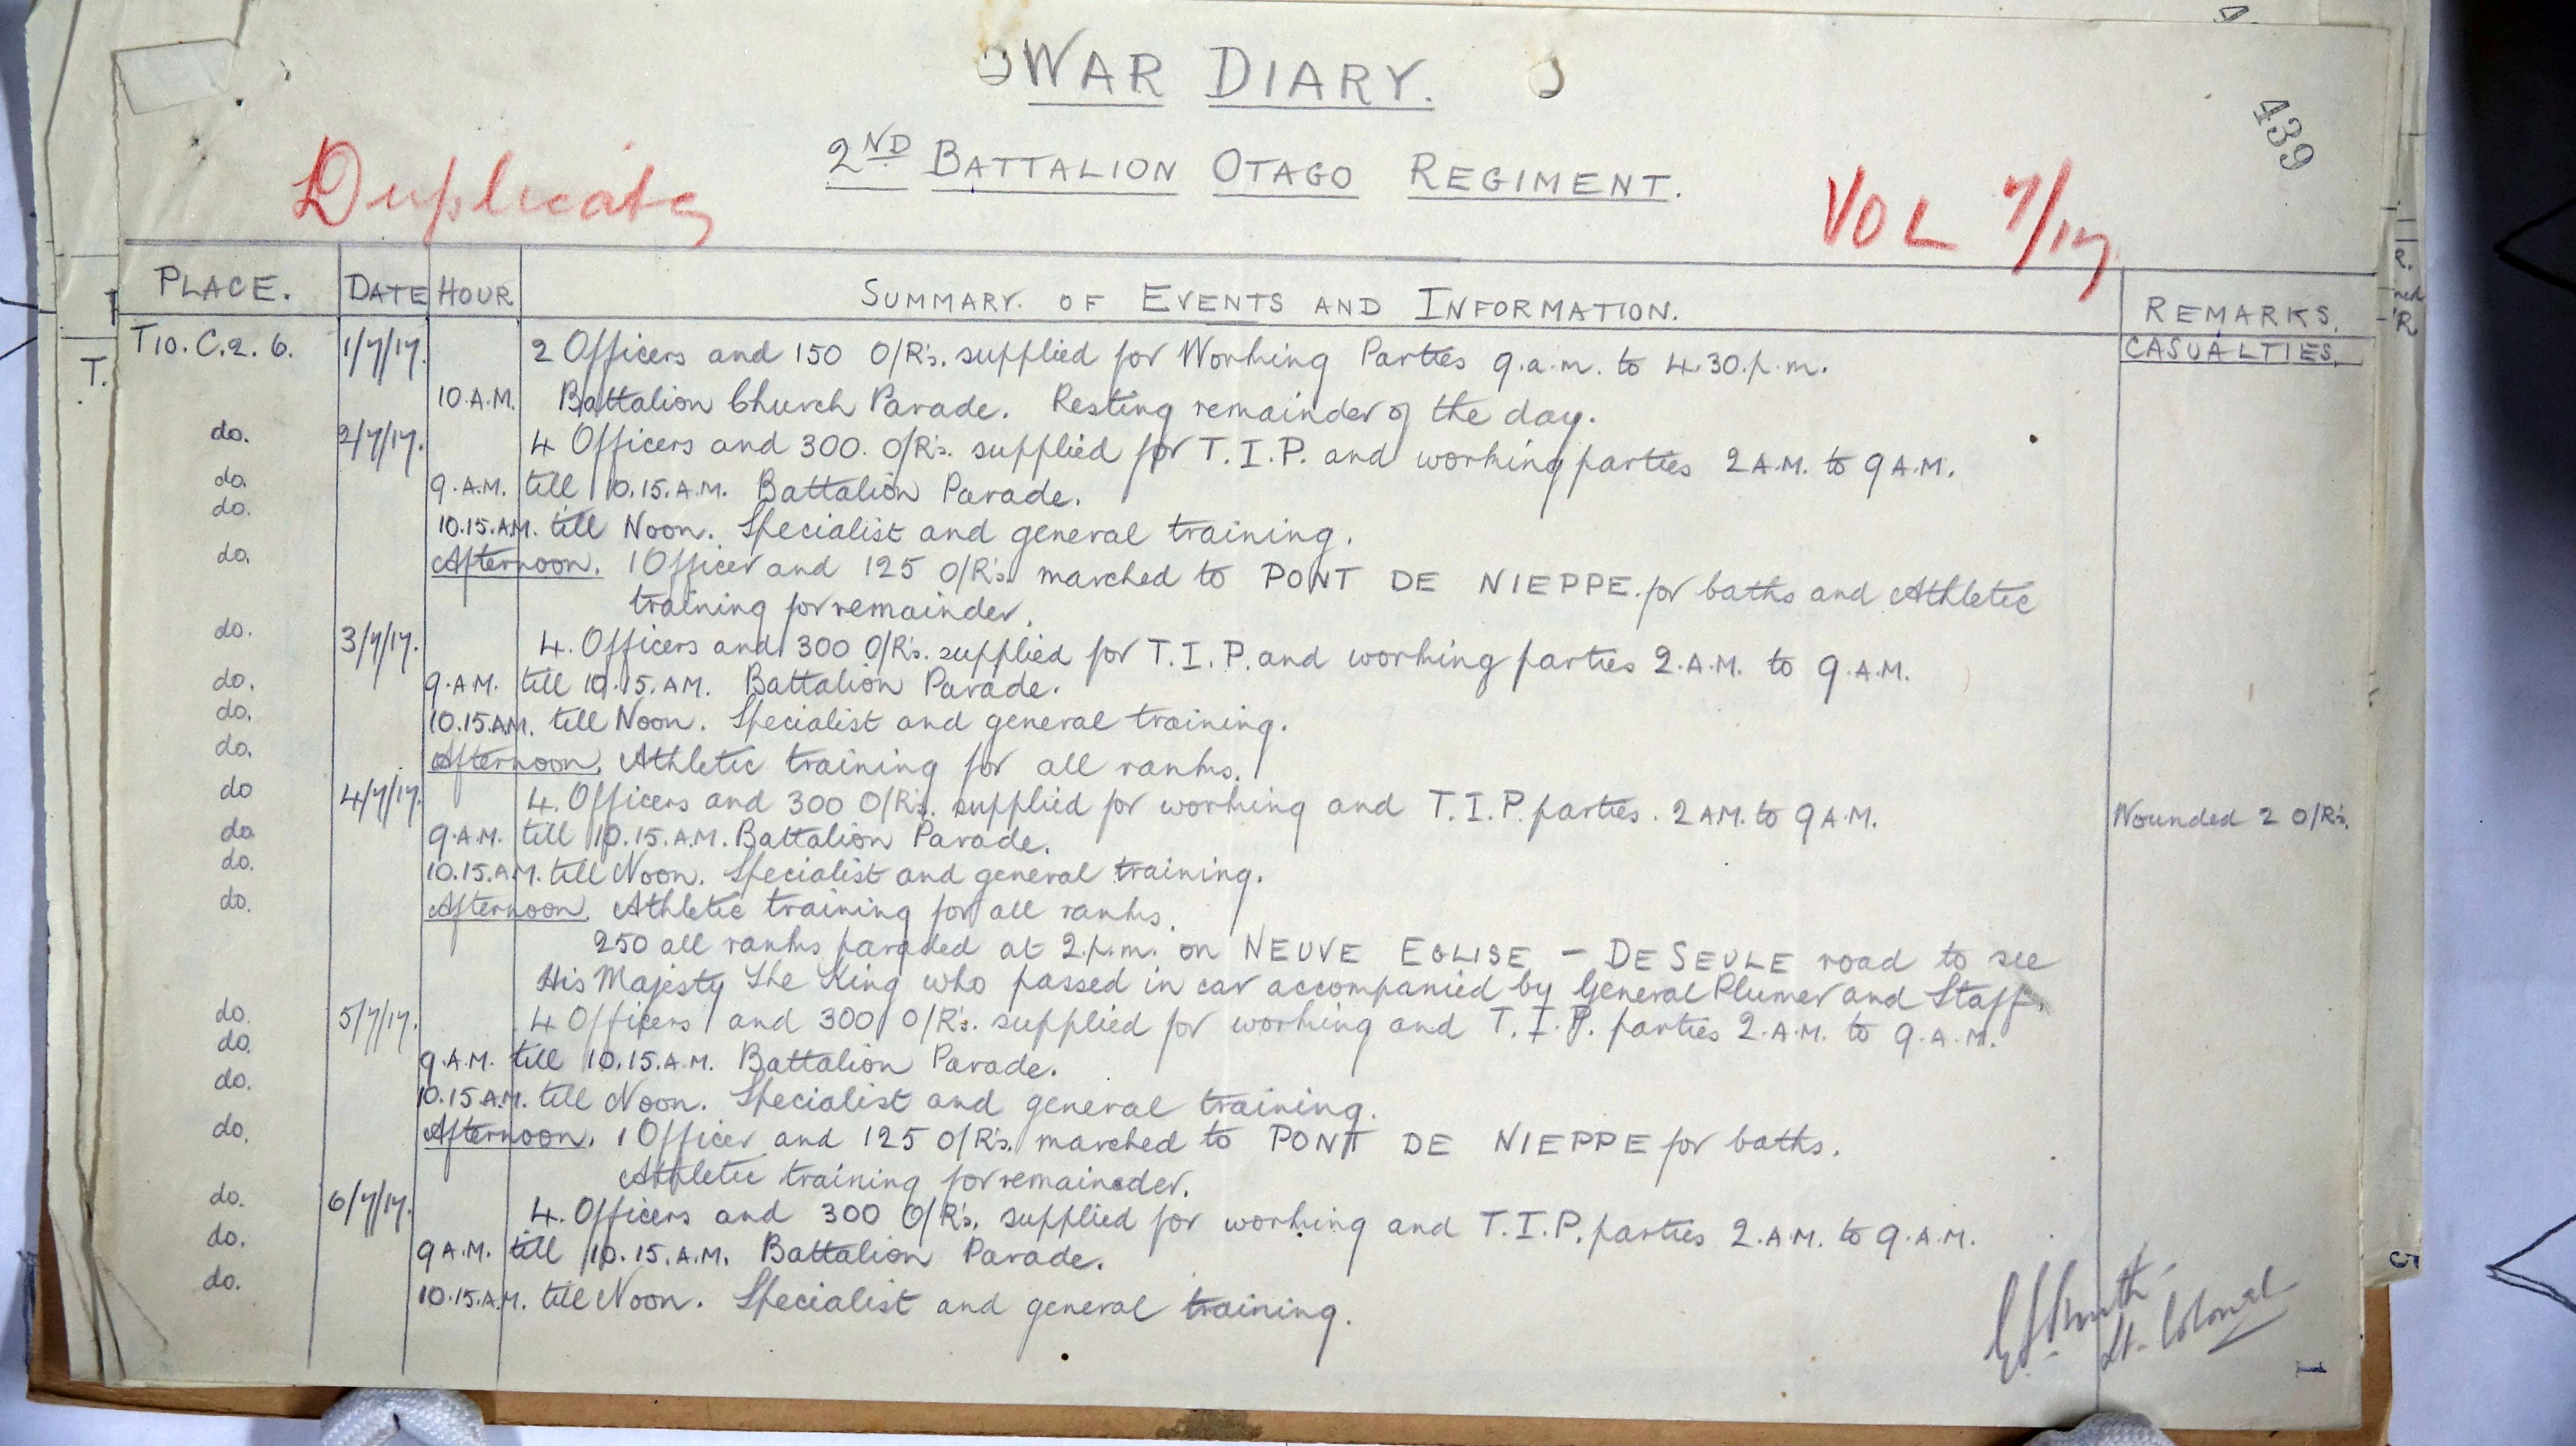 WAR DIARY.
439
2ND BATTALION OTAGO REGIMENT.
Duplicate
VOL 7/17
PLACE. DATE HOUR. SUMMARY. OF EVENTS AND INFORMATION. REMARKS.
CASUALTIES.
T10. C. 2. 6. 1/7/17. 2 Officers and 150 O/R's. supplied for Working Parties 9.a.m. to 4.30.p.m.
10.A.M. Battalion Church Parade. Resting remainder of the day.
do. 2/7/17. 4 Officers and 300. O/R's. supplied for T.I.P. and working parties 2 A.M. to 9 A.M.
do. 9.A.M. till 10.15.A.M. Battalion Parade.
do. 10.15.A.M. till Noon. Specialist and general training.
do. Afternoon. 1 Officer and 125 O/R's. marched to PONT DE NIEPPE. for baths and Athletic
training for remainder.
do. 3/7/17. 4. Officers and 300 O/R's. supplied for T.I.P. and working parties 2.A.M. to 9.A.M.
do. 9.A.M. till 10.15.A.M. Battalion Parade.
do. 10.15 A.M. till Noon. Specialist and general training.
do. Afternoon. Athletic training for all ranks.
do 4/7/17. 4. Officers and 300 O/R's. supplied for working and T.I.P. parties. 2 A.M. to 9 A.M. Wounded 2 O/R's.
do 9.A.M. till 10.15.A.M. Battalion Parade.
do. 10.15.A.M. till Noon. Specialist and general training.
do. Afternoon. Athletic training for all ranks.
250 all ranks paraded at 2.p.m. on NEUVE EGLISE - DE SEULE road to see
His Majesty The King who passed in car accompanied by General Plumer and Staff.
do. 5/7/17. 4 Officers and 300 O/R's. supplied for working and T.I.P. parties 2.A.M. to 9.A.M.
do. 9.A.M. till 10.15.A.M. Battalion Parade.
do. 10.15 A.M. till Noon. Specialist and general training.
do. Afternoon. 1 Officer and 125 O/R's. marched to PONT DE NIEPPE for baths.
Athletic training for remaineder.
do. 6/7/17. 4. Officers and 300 O/R's. supplied for working and T.I.P. parties 2.A.M. to 9.A.M.
do. 9 A.M. till 10.15.A.M. Battalion Parade.
do. 10.15.A.M. till Noon. Specialist and general training.
Smith
Lt. Colonel